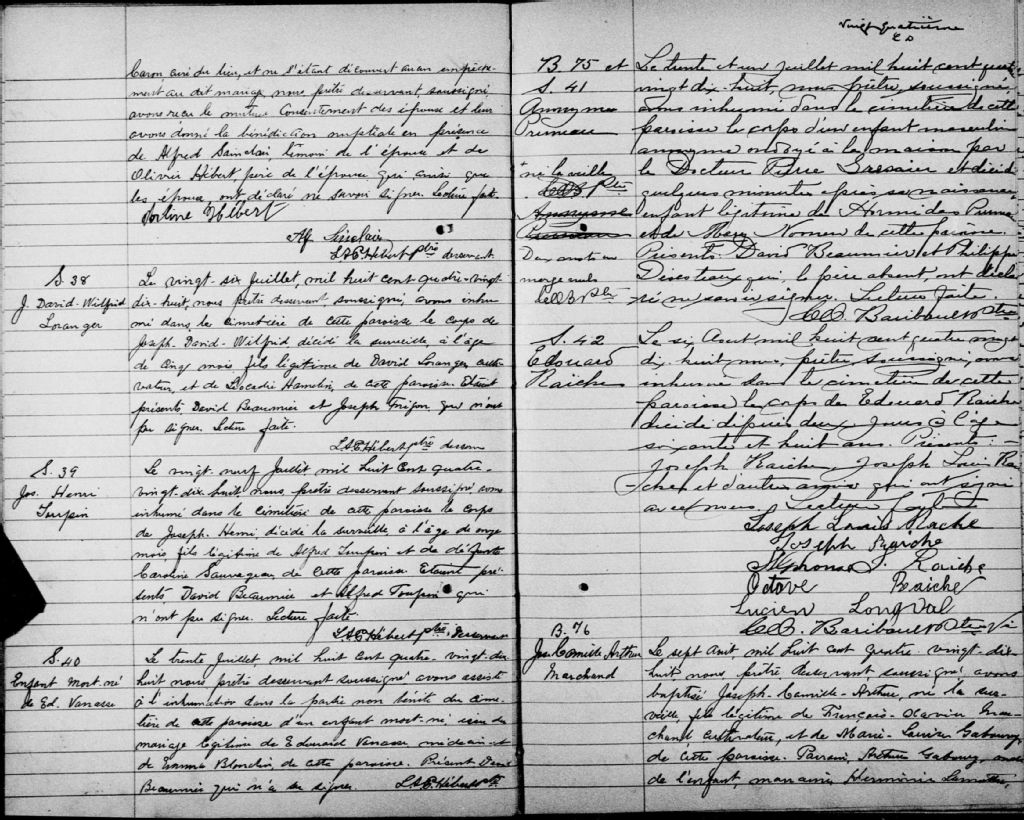 Caron curé du lieu, et ne s'étant découvert aucun empêche-
ment au dit mariage, nous prêtre desservant soussigné,
avons reçu le mutuel Consentement des époux et leur
avons donné la bénédiction nuptiale en présence
de Alfred Sainclair, témoin de l'époux et de
Olivier Hébert père de l'épouse qui ainsi que
les époux ont déclaré ne savoir signer. Lecture faite.
Hébert
Alf Sinclair
L.A.E. Hébert ptre desservant
S. 38
J. David-Wilfrid
Loranger
Le vingt-six Juillet, mil huit cent quatre-vingt
dix-huit, nous prêtre desservant, soussigné, avons inhu-
mé dans le cimetière de cette paroisse le corps de
Joseph-David-Wilfrid décédé la surveille à l'âge
de cinq mois fils légitime de David Loranger, culti-
vateur, et de Hamelin, de cette paroisse. Etaient
présents, David Beaumier et Joseph qui n'ont
pu signer. Lecture faite.
L.A.E. Hébert ptre desserv
S. 39
Jos. Henri
Turpin
Le vingt-neuf Juillet mil huit cent quatre-
vingt-dix-huit nous, prêtre desservant soussigné, avons
inhumé dans le cimetière de cette paroisse le corps
de Joseph-Henri décédé la surveille, à l'âge de onze
mois, fils légitime de Alfred et de défunte
Caroline Sauvageau, de cette paroisse. Etaient pré-
sents, David Beaumier et Alfred Toupin qui
n'ont pu signer. Lecture faite
L.A.E. Hébert ptre, desservant
S. 40
Enfant Mort-né
de Ed. Vanasse
Le trente Juillet mil huit cent quatre-vingt-dix
huit nous, prêtre desservant soussigné avons assisté
à l'inhumation dans la partie non bénite du cime-
tière de cette paroisse d'un enfant mort-né, issu du
mariage légitime de Edouard Vanasse médecin et
de Emma Blondin, de cette paroisse. Présent David
Beaumier qui n'a su signer. L.A.E. Hébert ptre
Vingt-quatrième
B. 75 et
S. 41
Anonyme
Primeau
né la veille
ptre
Anonyme
Primeau
Deux mots en
marge nuls
ptre
Le trente et un juillet mil huit cent quatre
vingt dix-huit, nous prêtre, soussigné,
avons inhumé dans le cimetière de cette
paroisse le corps d'un enfant masculin
anonyme ondoyé à la maison par
le Docteur Pierre et décédé
quelques minutes après sa naissance
enfant légitime de Hormidas Primeau
et de Mary de cette paroisse.
Présents David Beaumier et Philippe
qui, le père absent, ont décla-
ré ne savoir signer. Lecture faite.
Baribault ptre
S. 42
Edouard
Raiche
Le six Août mil huit cent quatre vingt
dix-huit nous, prêtre, soussigné, avons
inhumé dans le cimetière de cette
paroisse le corps de Edouard Raiche
décédé depuis deux jours à l'âge
soixante et huit ans. Présents :-
Joseph Raiche, Joseph Louis Rai-
che et d'autres amis qui ont signé
avec nous. Lecture faite
Joseph Louis Rache
Joseph Rarche
Alphonse J. Raiche
Octave Raiche
Lucien Longval
Baribault ptre
B. 76
Jos. Camille Arthur
Marchand
Le sept Août, mil huit cent quatre-vingt-dix-
huit nous, prêtre desservant, soussigné avons
baptisé Joseph-Camille-Arthur, né la sur-
veille, fils légitime de François-Xavier Mar-
chand cultivateur, et de Marie-Louise Gaboury
de cette paroisse. Parrain, Arthur Gaboury, oncle
de l'enfant, marraine, Herminie